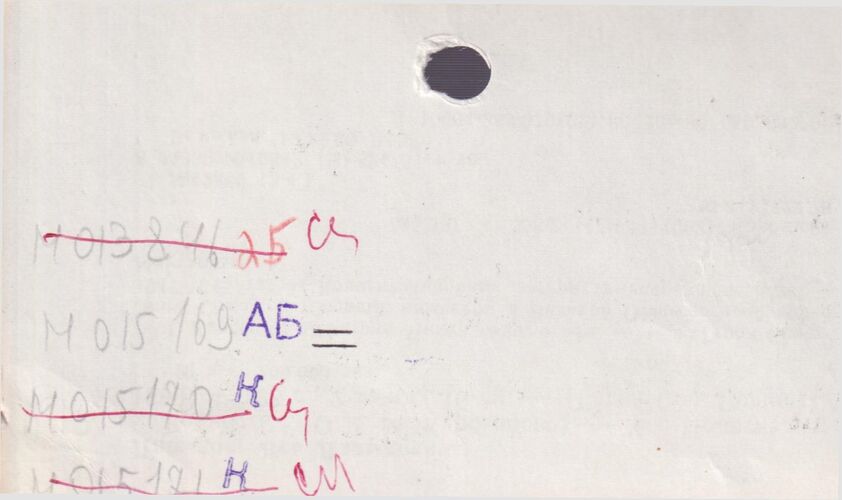 М013846 25 Сп
М015169 АБ =
М015170 К Сп
М015171 К сп